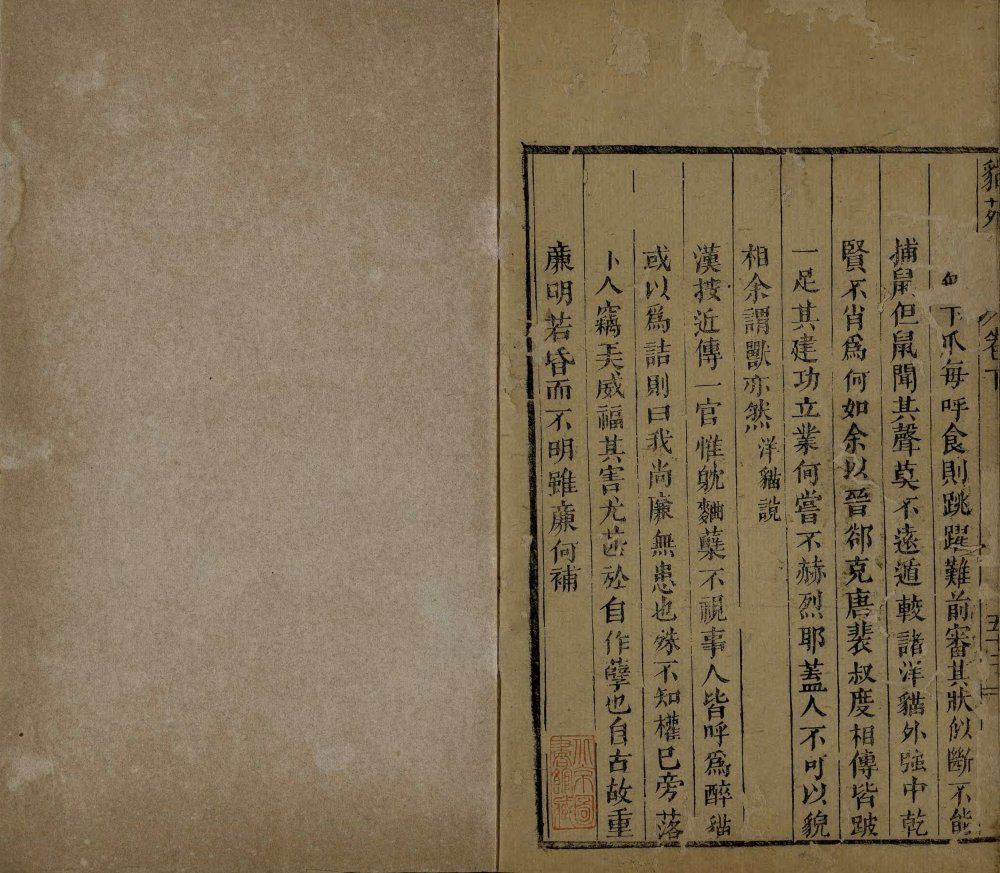 貓苑
卷下
五十三
下爪每呼食則跳躍難前審其狀似斷不能
捕鼠但鼠聞其聲莫不遠遁較諸洋貓外強中乾
賢不肖爲何如余以晉郤克唐裴叔度相傳皆跛
一足其建功立業何嘗不赫烈耶蓋人不可以貌
相余謂獸亦然洋貓說
漢按近傳一官惟躭麯蘖不視事人皆呼爲醉貓
或以爲詰則曰我尚廉無患也殊不知權已旁落
卜人竊美威福其害尤甚於自作孽也自古故重
廉明若昏而不明雖廉何補